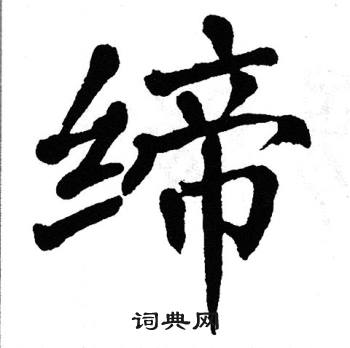 缔
词典网